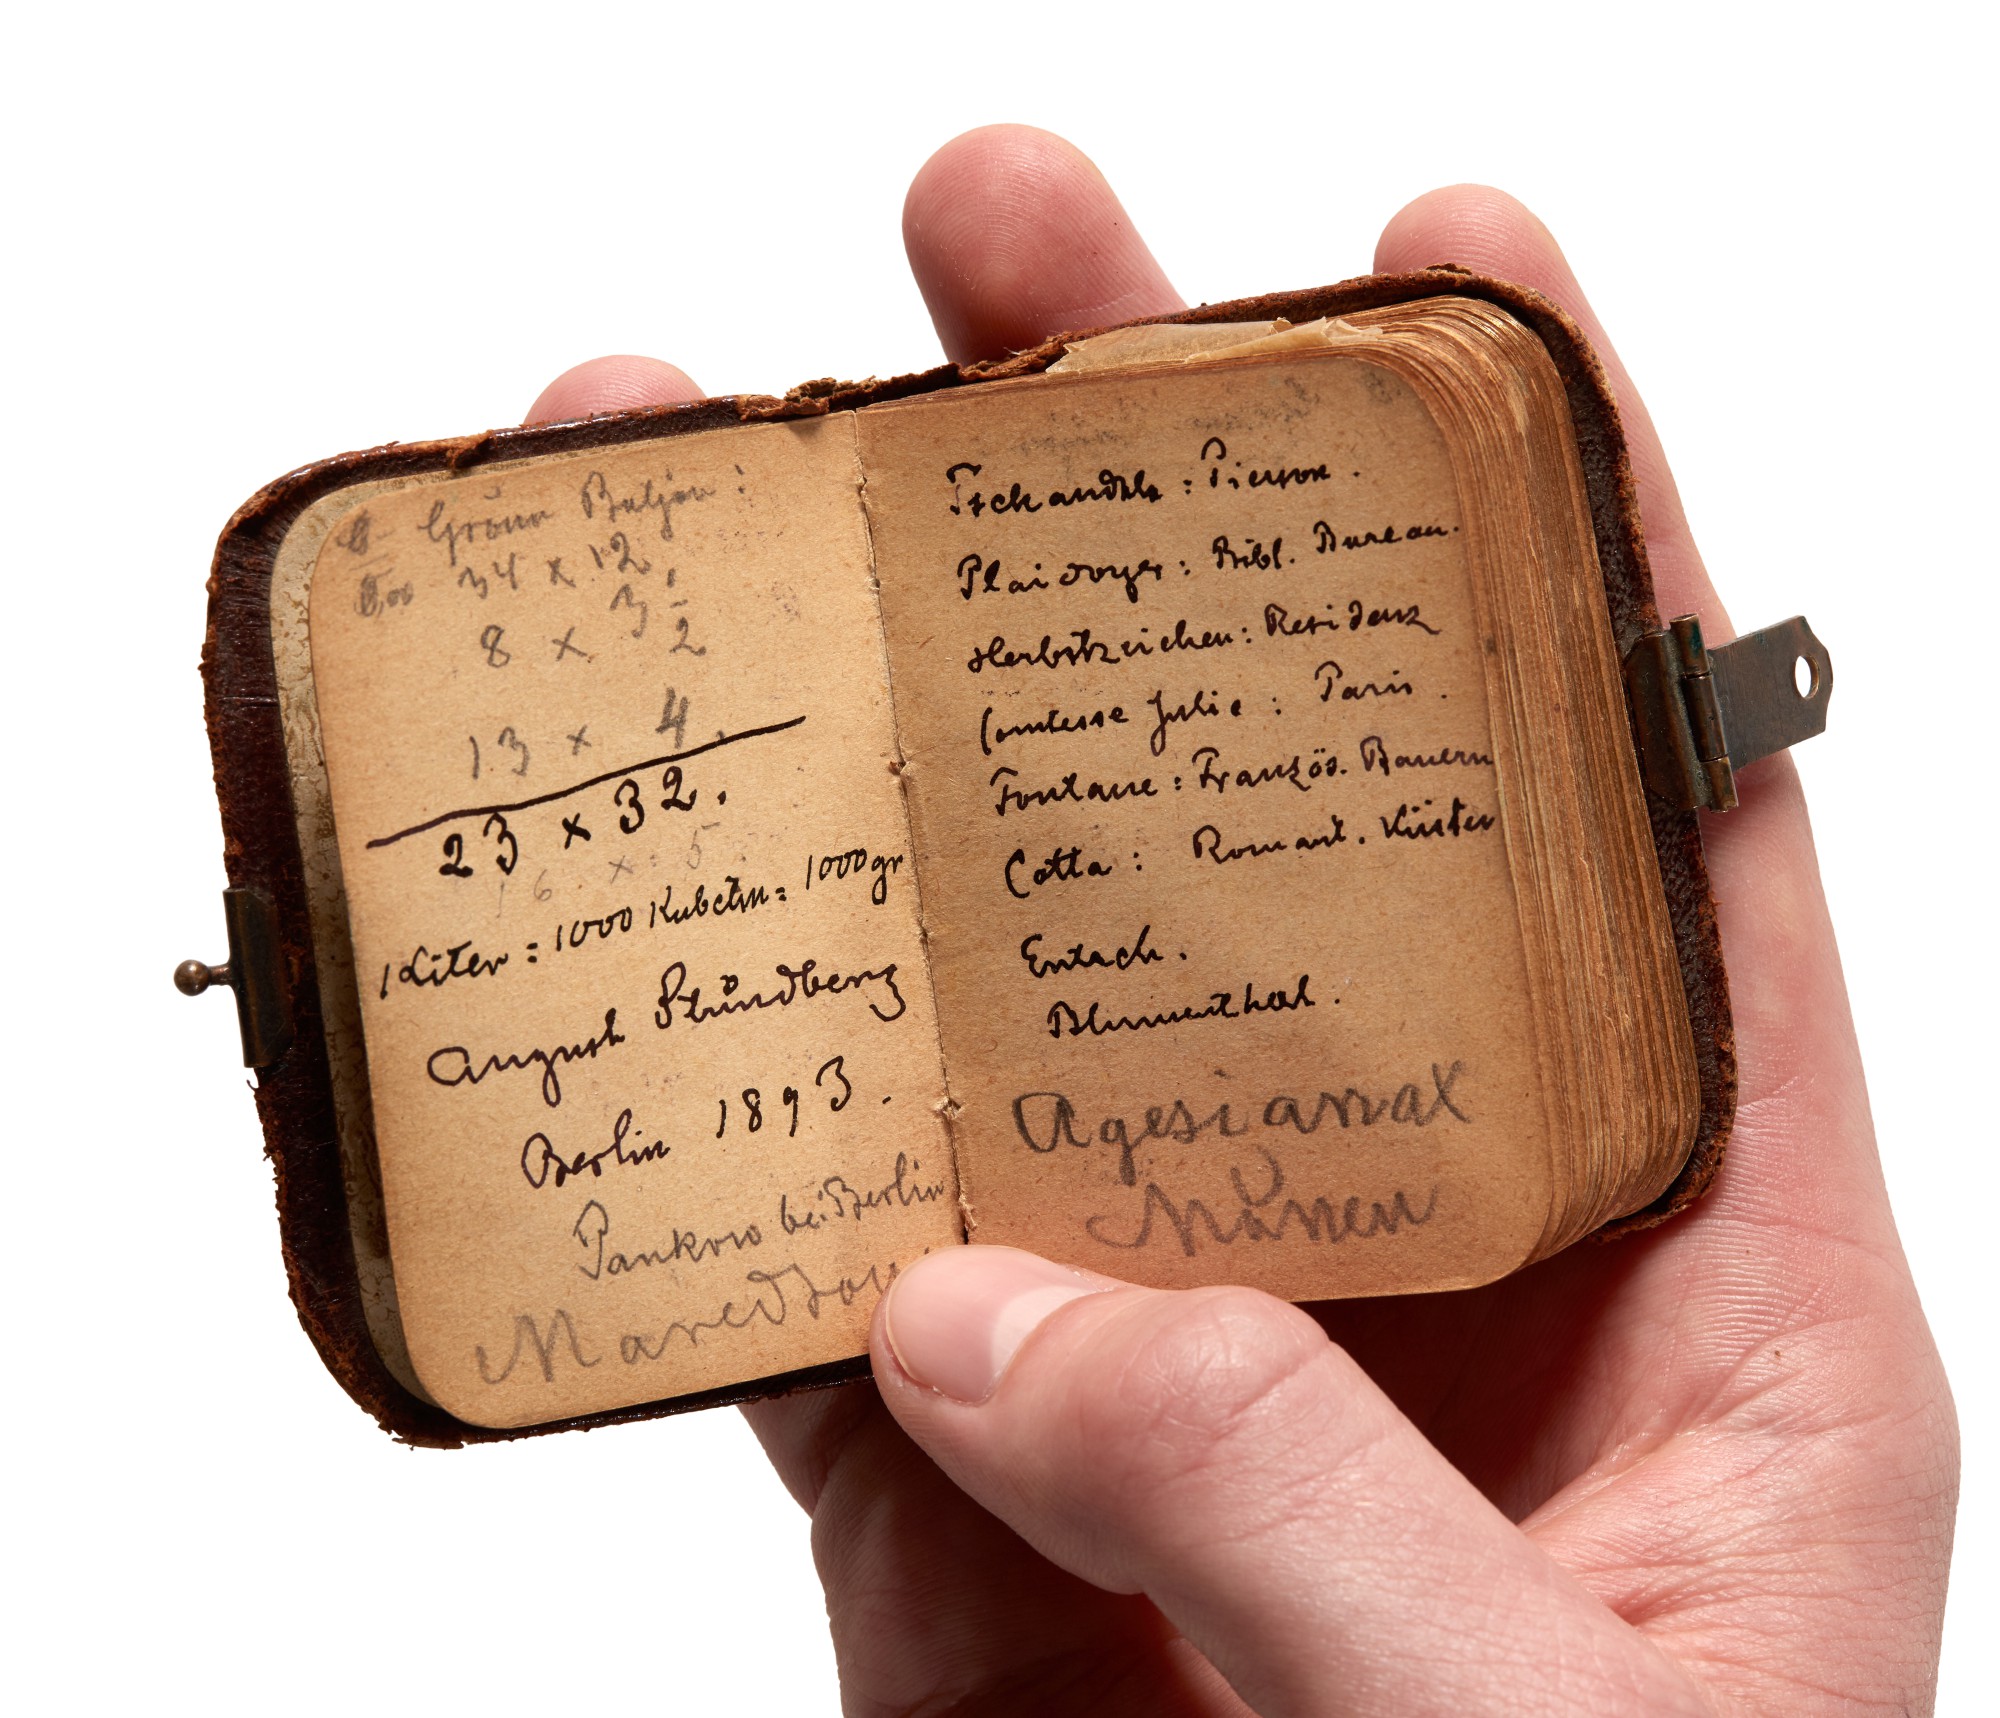 Gröna Baljan:
34 x 12.
8 x 3 1/2
13 x 4.
23 x 32.
16 x 5
1 Liter = 1000 Kubctm = 1000 gr
August Strindberg
Berlin 1893.
Pankow bei Berlin
Maredsou
Tschandala: Pierson.
Plaidoyer: Bibl. Bureau.
Herbstzeichen: Residenz
Comtesse Julie: Paris.
Fontane: Französ. Bauern
Cotta: Romant. Küster
Entsch.
Blumenthal.
Agesianax
Månen